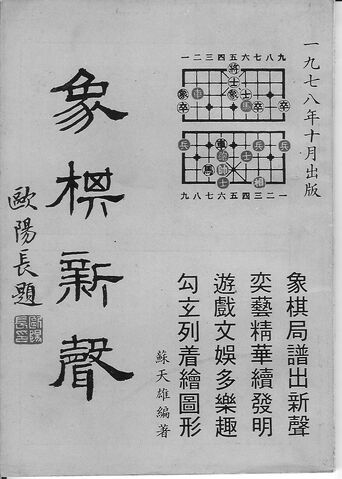 一九七八年十月出版
一二三四五六七八九
將
士
卒 卒 卒
兵 兵 兵
九八七六五四三二一
象棋局譜出新聲
奕藝精華續發明
遊戲文娛多樂趣
勾玄列着繪圖形
蘇天雄編著
象棋新聲
歐陽長題